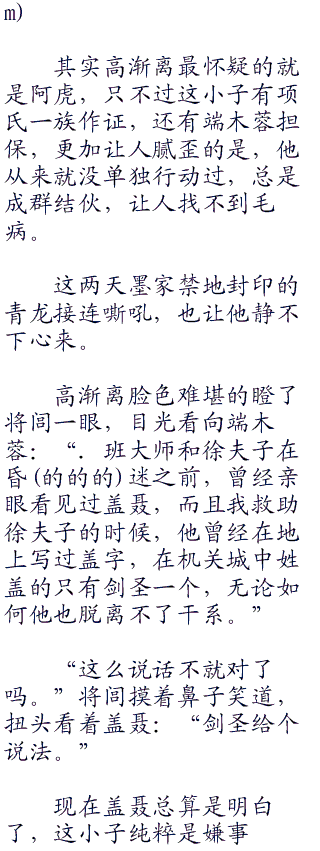 m)
其实高渐离最怀疑的就
是阿虎，只不过这小子有项
氏一族作证，还有端木蓉担
保，更加让人腻歪的是，他
从来就没单独行动过，总是
成群结伙，让人找不到毛
病。
这两天墨家禁地封印的
青龙接连嘶吼，也让他静不
下心来。
高渐离脸色难堪的瞪了
将闾一眼，目光看向端木
蓉：“．班大师和徐夫子在
昏(的的的)迷之前，曾经亲
眼看见过盖聂，而且我救助
徐夫子的时候，他曾经在地
上写过盖字，在机关城中姓
盖的只有剑圣一个，无论如
何他也脱离不了干系。”
“这么说话不就对了
吗。”将闾摸着鼻子笑道，
扭头看着盖聂：“剑圣给个
说法。”
现在盖聂总算是明白
了，这小子纯粹是嫌事